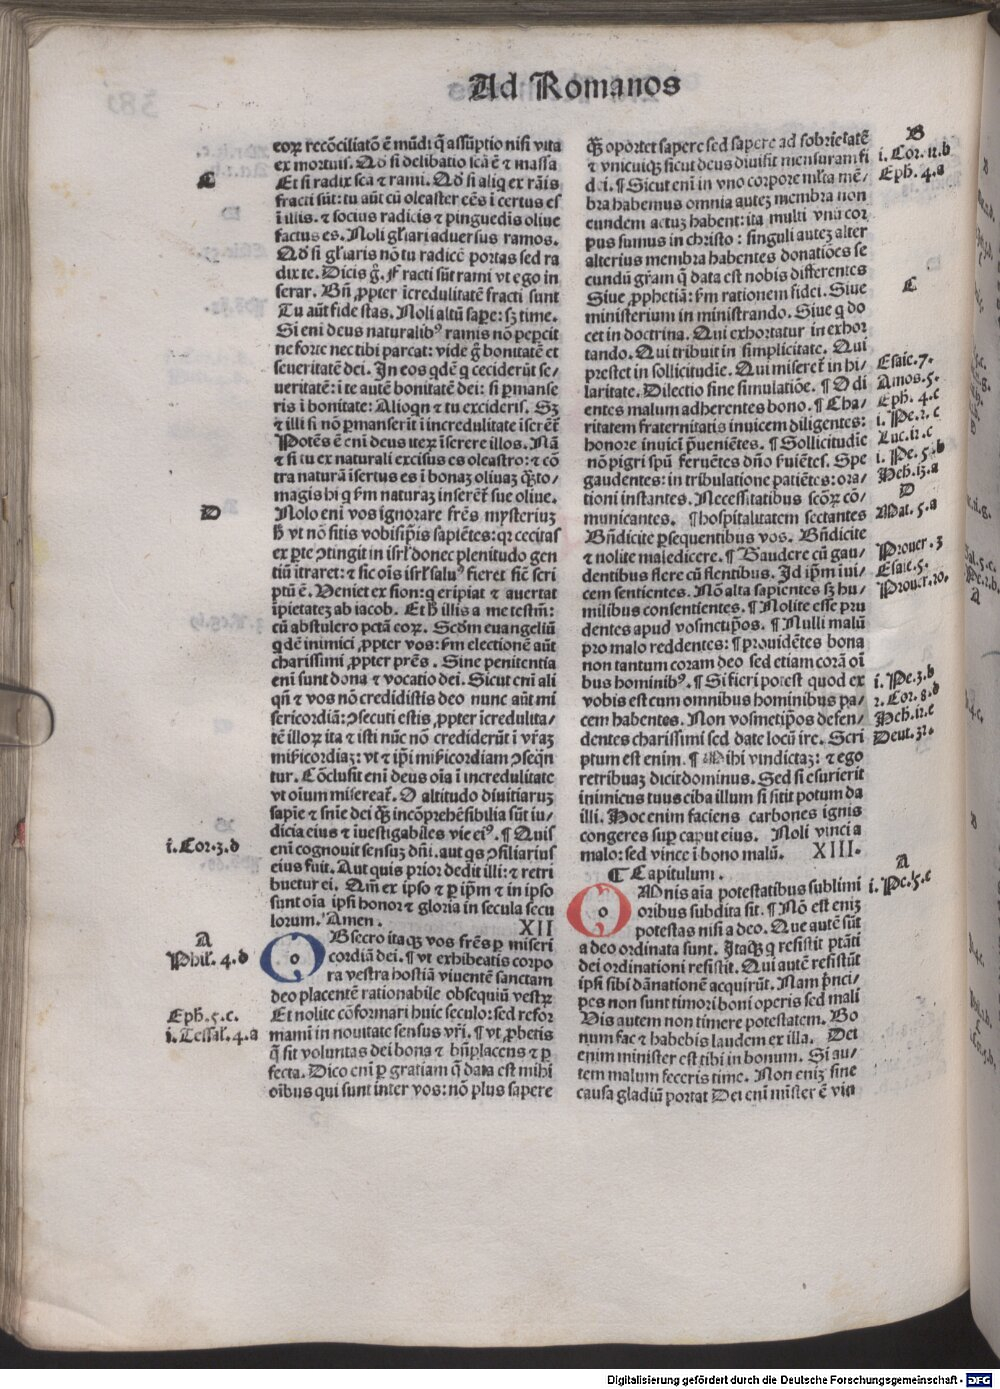 Ad Romanos
eoꝝ recōciliatō ē mūdi q̄ assūptio nisi vita
ex mortuis. Qd si delibatio scā ē ⁊ massa
C
Et si radix scā ⁊ rami. Qd si aliq̄ ex rāis
fracti sūt: tu aūt cū oleaster eēs ī certus es
ī illis. ⁊ socius radicis ⁊ pinguedīs oliue
factus es. Noli gl̄iari aduersus ramos.
Qd si gl̄iaris nō tu radicē portas sed ra
dix te. Dicis g̊. Fracti sūt rami vt ego in
serar. Bn̄ ꝓpter īcredulitatē fracti sunt
Tu aūt fide stas. Noli altū sape: sꝫ time.
Si eni deus naturalibꝰ ramis nō peꝑcit
ne forte nec tibi parcat: vide g̊ bonitatē et
seueritatē dei. In eos qdē q̇ ceciderūt se/
ueritatē: ī te autē bonitatē dei: si ꝑmanse
ris ī bonitate: Alioqn ⁊ tu excideris. Sꝫ
⁊ illi si nō ꝑmanserīt ī incredulitate īserēt̄
Potēs ē eni deus iteꝝ īserere illos. Nā
⁊ si tu ex naturali excisus es oleastro: ⁊ cō
tra naturā īsertus es ī bonaꝫ oliuaꝫ q̄ꝫto/
magis hi q̇ ẜm naturaꝫ inserēt̄ sue oliue.
D
Nolo eni vos ignorare frēs mysteriuꝫ
ħ vt nō sitis vobisip̄is sapiētes: qꝛ cecitas
ex ꝑte ꝯtingit in isrl̄ donec plenitudo gen
tiū ītraret: ⁊ sic oīs isrl̄ saluꝰ fieret sic̄ scri
ptū ē. Veniet ex sion: q̇ eripiat ⁊ auertat
īpietateꝫ ab iacob. Et ħ illis a me testm̄:
cū abstulero pctā eoꝝ. Scdm euangeliū
qdē inimici ꝓpter vos: ẜm electionē aūt
charissimi ꝓpter prēs. Sine penitentia
eni sunt dona ⁊ vocatio dei. Sicut eni ali
qn̄ ⁊ vos nō credidistis deo nunc aūt mi
sericordiā: ꝯsecuti estis ꝓpter īcredulita/
tē illoꝝ ita ⁊ isti nūc nō crediderūt ī vr̄aꝫ
mīsricordiaꝫ: vt ⁊ ip̄i mīsricordiam ꝯseqn̄
tur. Cōclusit eni deus oīa ī incredulitate
vt oīum misereat̄. O altitudo diuitiaruꝫ
sapīe ⁊ sn̄ie dei q̄ꝫ incōprehēsibilia sūt iu/
dicia eius ⁊ īuestigabiles vie eiꝰ. ¶ Quis
i. Cor. 3. d
eni cognouit sensuꝫ dn̄i. aut qs ꝯsiliarius
eius fuit. Aut quis prior dedit illi: ⁊ retri
buetur ei. Qm̄ ex ipso ⁊ ꝑ ip̄m ⁊ in ipso
sunt oīa ipsi honor ⁊ gloria in secula secu
lorum. Amen.
XII
A
Phil. 4. d
OBsecro itaqꝫ vos frēs ꝑ miseri
cordiā dei. ¶ vt exhibeatis corpo
ra vestra hostiā viuentē sanctam
deo placentē rationabile obsequiū vestꝝ
Eph. 5. c.
Et nolite cōformari huic seculo: sed refor
i. Tessal. 4. a
mamī in nouitate sensus vr̄i. ¶ vt ꝓbetis
q̄ sit voluntas dei bona ⁊ bn̄placens ⁊ ꝑ
fecta. Dico eni ꝑ gratiam q̄ data est mihi
oībus qui sunt inter vos: nō plus sapere
q̄ꝫ oportet sapere sed sapere ad sobrietatē
B
⁊ vnicuiqꝫ sicut deus diuisit mensuram fi
i. Cor. 12. b
dei. ¶ Sicut eni in vno corpore ml̄ta mē/
Eph. 4. a
bra habemus omnia auteꝫ membra non
eundem actuꝫ habent: ita multi vnū cor
pus sumus in christo: singuli auteꝫ alter
alterius membra habentes donatiōes se
cundū gr̄am q̄ data est nobis differentes
C
Siue ꝓphetiā: ẜm rationem fidei. Siue
ministerium in ministrando. Siue q̇ do
cet in doctrina. Qui exhortatur in exhor
tando. Qui tribuit in simplicitate. Qui
prestet in sollicitudīe. Qui miseret̄ in hi/
Esaie. 7.
laritate. Dilectio sine simulatiōe. ¶ Odi
Amos. 5.
entes malum adherentes bono. ¶ Cha/
Eph. 4. c
ritatem fraternitatis inuicem diligentes:
i. Pe. 2. c
honore inuicē p̄uenientēs. ¶ Sollicitudīe
Luc. 12. c
nō pigri spū feruētes dn̄o ẜuiētes. Spe
i. Pe. 5. b
gaudentes: in tribulatione patiētes: ora/
Heb. 13. a
tioni instantes. Necessitatibus scōꝝ cō/
D
municantes. ¶ hospitalitatem sectantes
Mat. 5. a
Bn̄dicite ꝑsequentibus vos. Bn̄dicite
⁊ nolite maledicere. ¶ Gaudere cū gau/
Prouer. 3
dentibus flere cū flentibus. Id ip̄m īui/
Esaie. 5.
cem sentientes. Nō alta sapientes sꝫ hu/
Prouer. 20.
milibus consentientes. ¶ Nolite esse pru
dentes apud vosmetip̄os. ¶ Nulli malū
pro malo reddentes: ¶ prouidētes bona
non tantum coram deo sed etiam corā oī
bus hominibꝰ. ¶ Si fieri potest quod ex
i. Pe. 3. b
vobis est cum omnibus hominibus pa/
2. Cor. 8. d
cem habentes. Non vosmetip̄os defen/
Heb. 12. e
dentes charissimi sed date locū ire. Scri
Deut. 32.
ptum est enim. ¶ Mihi vindictaꝫ: ⁊ ego
retribuaꝫ dicit dominus. Sed si esurierit
inimicus tuus ciba illum si sitit potum da
illi. Hoc enim faciens carbones ignis
congeres suꝑ caput eius. Noli vinci a
malo: sed vince ī bono malū.
XIII.
¶ Capitulum.
A
OMnis aīa potestatibus sublimi
i. Pe. 5. c
oribus subdita sit. ¶ Nō est eniꝫ
potestas nisi a deo. Que autē sūt
a deo ordinata sunt. Itaqꝫ q̇ resistit ptāti
dei ordinationi resistit. Qui autē resistūt
ipsi sibi dānationē acquirūt. Nam p̄nci/
pes non sunt timori boni operis sed mali
Vis autem non timere potestatem. Bo
num fac ⁊ habebis laudem ex illa. Dei
enim minister est tibi in bonum. Si au/
tem malum feceris time. Non eniꝫ sine
causa gladiū portat Dei eni mīster ē vin
Digitalisierung gefördert durch die Deutsche Forschungsgemeinschaft - DFG